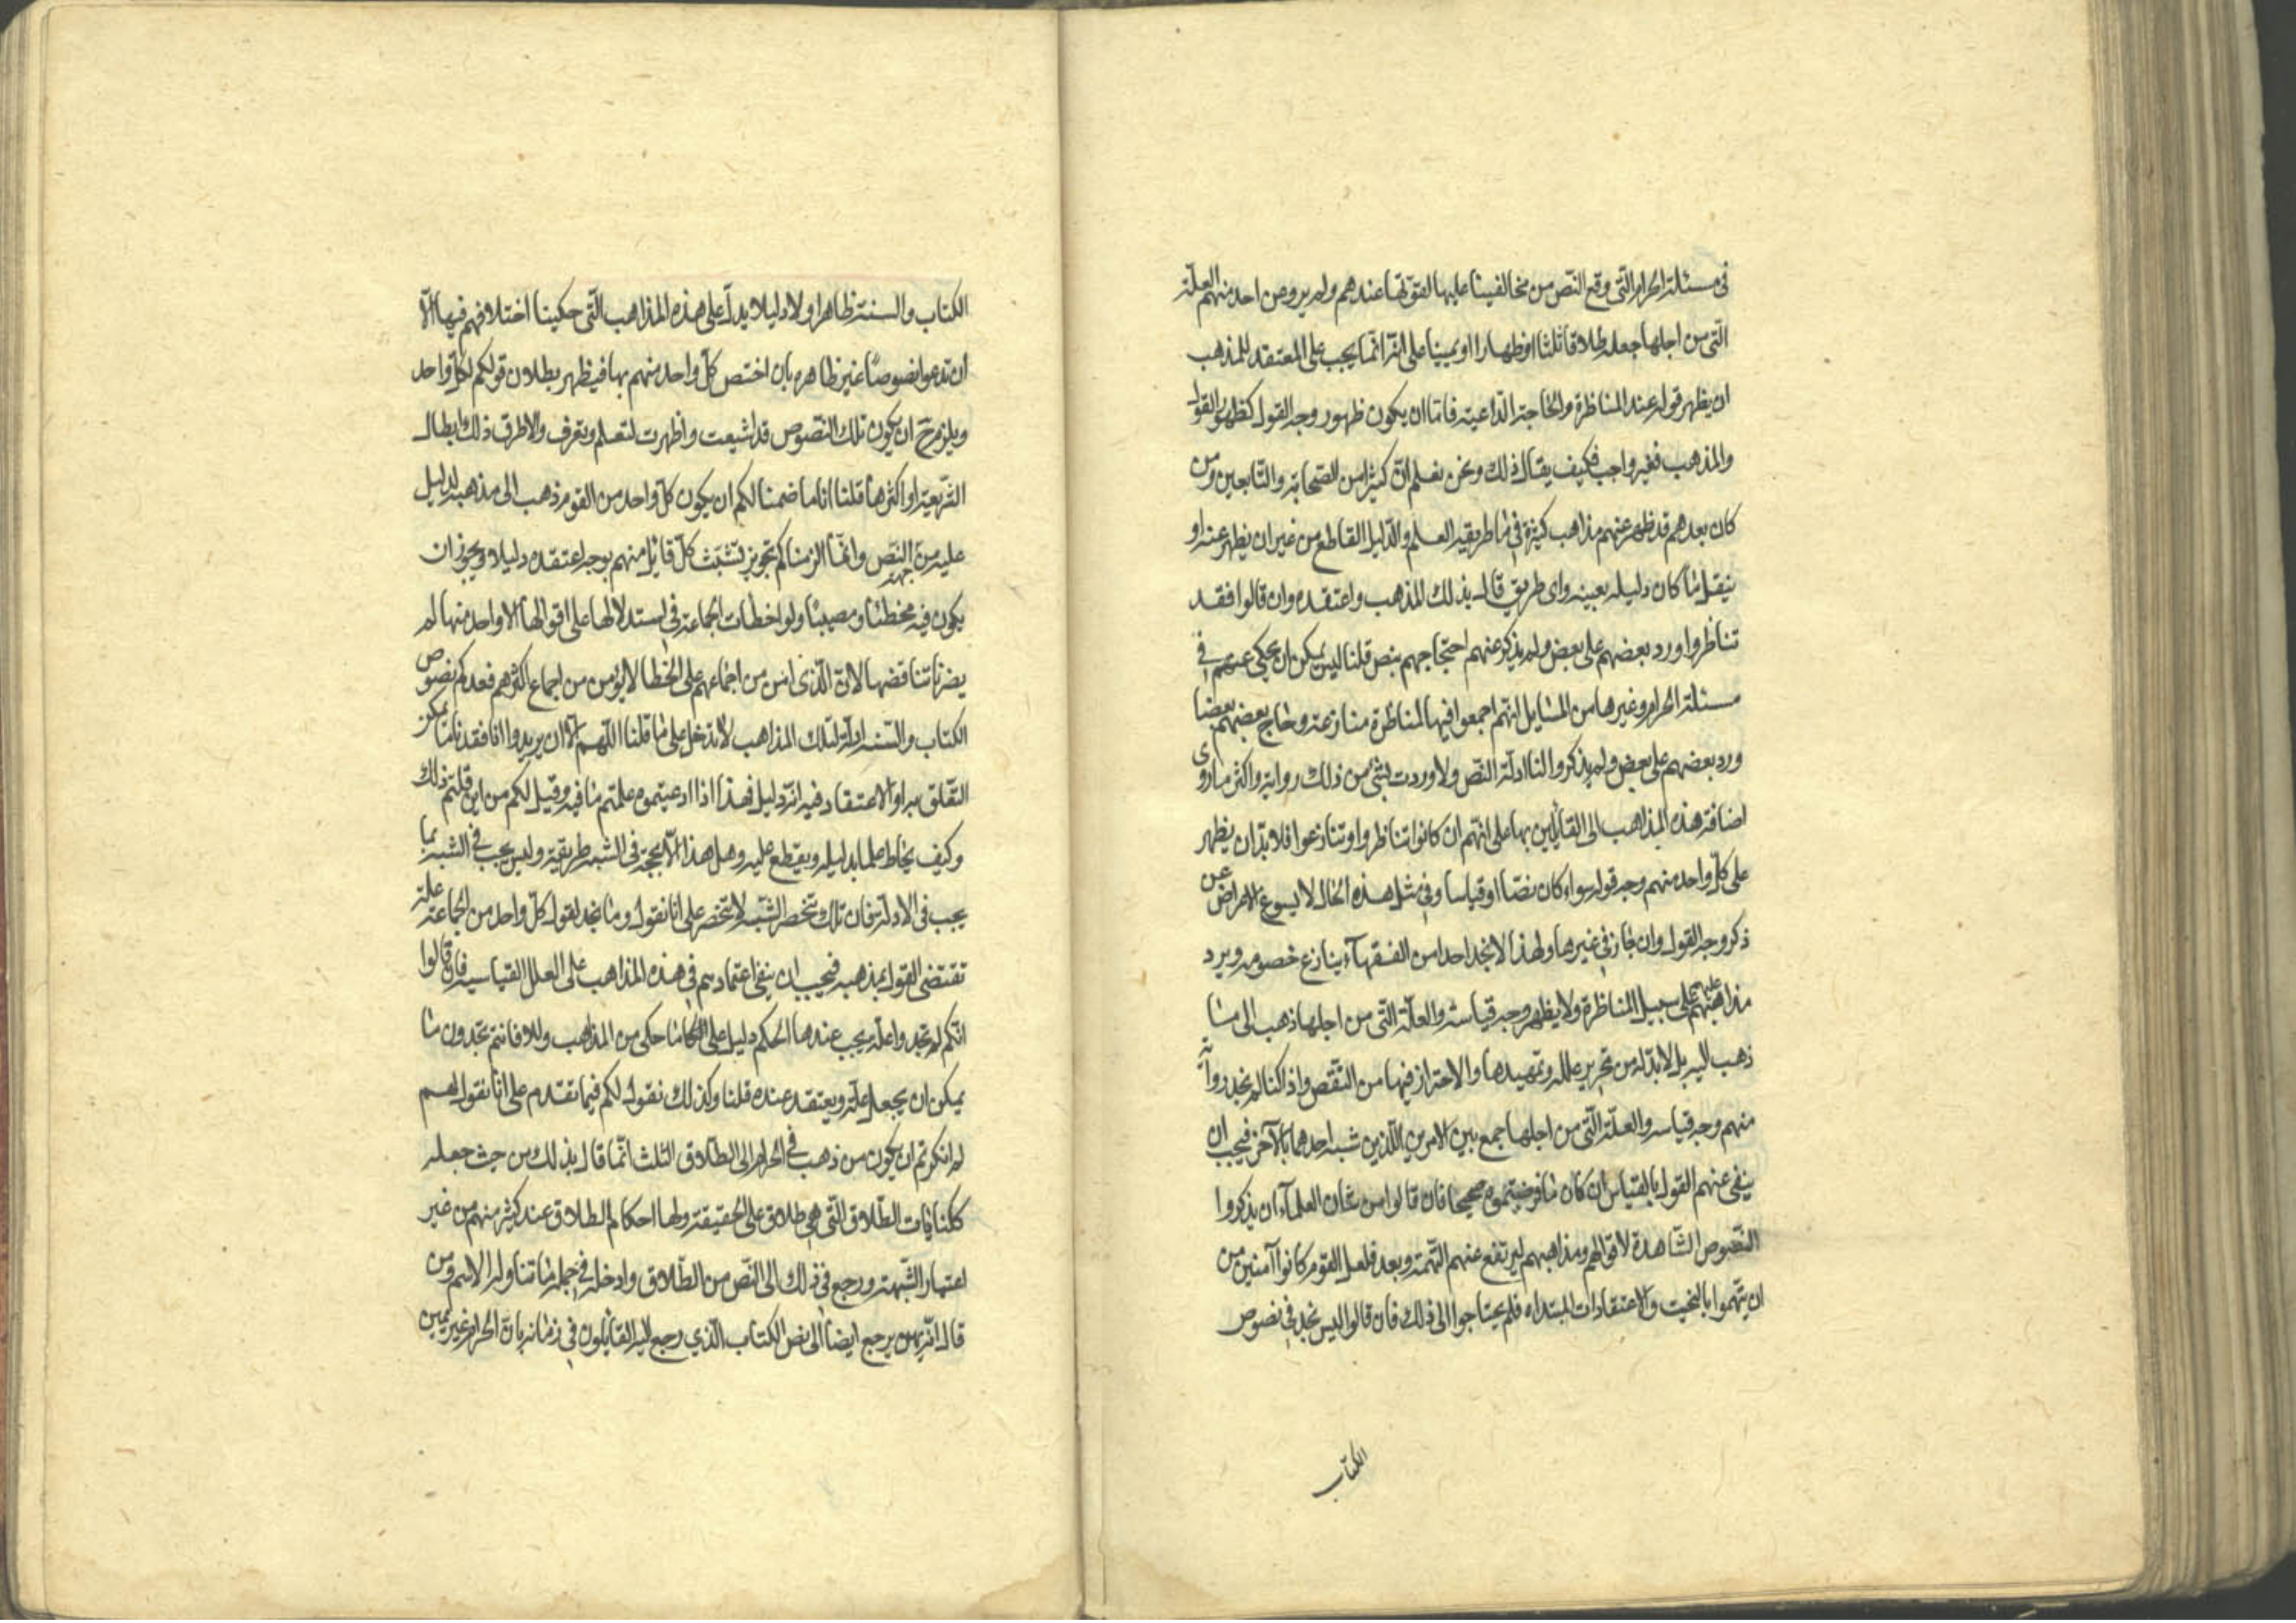 في مسئلة الحرام التي وقع النص من مخالفينا عليها لقوتها عندهم ولم يرو عن احد منهم العلة
التي من اجلها جعله طلاقا ثلثا او ظهارا او يمينا على انه انما يجب على المعتقد للمذهب
ان يظهر قوله عند المناظرة والحاجة الداعية فاما ان يكون ظهور وجه القول كظهور القول
والمذهب فغير واجب فكيف يقال ذلك ونحن نعلم ان كثيرا من الصحابة والتابعين ومن
كان بعدهم قد ظهر عنهم مذاهب كثيرة فيما طريقه العلم والدليل القاطع من غير ان يظهر عنه او
ينقل ما كان دليله بعينه واى طريق قال بذلك المذهب واعتقده وان قالوا فقد
تناظروا ورد بعضهم على بعض ولم يذكر عنهم احتجاجهم بنص قلنا ليس يمكن ان يحكى عنهم في
مسئلة الحرام وغيرها من المسايل انهم اجمعوا فيها لمناظرة منازعة وحاج بعضهم بعضا
ورد بعضهم على بعض ولم يذكروا لنا ادلة النص ولا وردت بشئ من ذلك رواية واكثر ما روى
اضافة هذه المذاهب الى القايلين بها على انهم ان كانوا تناظروا وتنازعوا فلا بد ان يظهر
على كل واحد منهم وجه قوله سواء كان نصا او قياسا وفي مثل هذه الحال لا يسوغ الاعراض عن
ذكر وجه القول وان جاز في غيرها ولهذا لا نجد احدا من الفقهاء ينازع خصومه ويرد
مذاهبهم عليهم على سبيل المناظرة ولا يظهر وجه قياسه والعلة التي من اجلها ذهب الى ما
ذهب اليه بل لا بد له من تحرير علله وتمهيدها والاحتراز فيها من النقص واذا كنا لم نجد رواية
منهم وجه قياسه والعلة التي من اجلها جمع بين الامرين اللذين شبه احدهما بالآخر فيجب ان
ينفى عنهم القول بالقياس ان كان ما فرضتموه صحيحا فان قالوا من شان العلماء ان يذكروا
النصوص الشاهدة لاقوالهم ومذاهبهم ليرتفع عنهم التهمة وبعد فلعل القوم كانوا آمنين من
ان يتهموا بالتخيت والاعتقادات المبتداه فلم يحتاجوا الى ذلك فان قالوا اليس نجد في نصوص
الكتاب
الكتاب والسنة ظاهرا ولا دليلا يدل على هذه المذاهب التي حكينا اختلافهم فيها الا
ان تدعوا نصوصا غير ظاهره بان اختص كل واحد منهم بها فيظهر بطلان قولكم لكل واحد
ويلزم ح ان يكون تلك النصوص قد اشيعت واظهرت لتعلم وتعرف والا طرق ذلك ابطال
الشريعة او اكثرها قلنا انا ما ضمنا لكم ان يكون كل واحد من القوم ذهب الى مذهبه لدليل
عليه من جهة النص وانما الزمناكم تجويز تشبث كل قايل منهم بوجه اعتقده دليلا ويجوز ان
يكون فيه مخطئا ومصيبا ولو اخطات الجماعة في استدلالها على اقوالها الا واحد منها لم
يضرنا تناقضها لان الذى امن من اجماعهم على الخطا لا يؤمن من اجماع اكثرهم فعدكم نصوص
الكتاب والسنة ادلة لتلك المذاهب لا تدخل على ما قلنا اللهم الا ان يريدوا انا فقدنا ما يمكن
التعلق به او الاعتقاد فيه انه دليل فهذا اذا ادعيتموه علمتم ما فيه وقيل لكم من اين قلتم ذلك
وكيف يحاط علما بدليله ويقطع عليه وهل هذا الا تحجر في الشبه طريقه وليس يجب في الشبه ما
يجب في الادلة فان تلك تنحصر الشبه لا تنحصر على انا نقول وما نجد لقول كل واحد من الجماعة علة
تقتضى القول بمذهبه فيجب ان ينفى اعتمادهم في هذه المذاهب على العلل القياسيه فان قالوا
انكم لم تجدوا علة يجب عندها الحكم دليل على كل ما حكى من المذاهب والا فانتم تجدون ما
يمكن ان يجعل علة ويعتقد عنده قلنا وكذلك نقول لكم فيما تقدم على انا نقول لهم
لم انكرتم ان يكون من ذهب في الحرام الى الطلاق الثلث انما قال بذلك من حيث جعله
ككنايات الطلاق التي هي طلاق على الحقيقة ولها احكام الطلاق عند كثير منهم من غير
اعتبار الشبهة ورجع في ذلك الى النص من الطلاق وادخله في جملة ما تناوله الاسم ومن
قال انه يمين يرجع ايضا الى نص الكتاب الذي رجع اليه القايلون في زمانه بان الحرام غير يمين